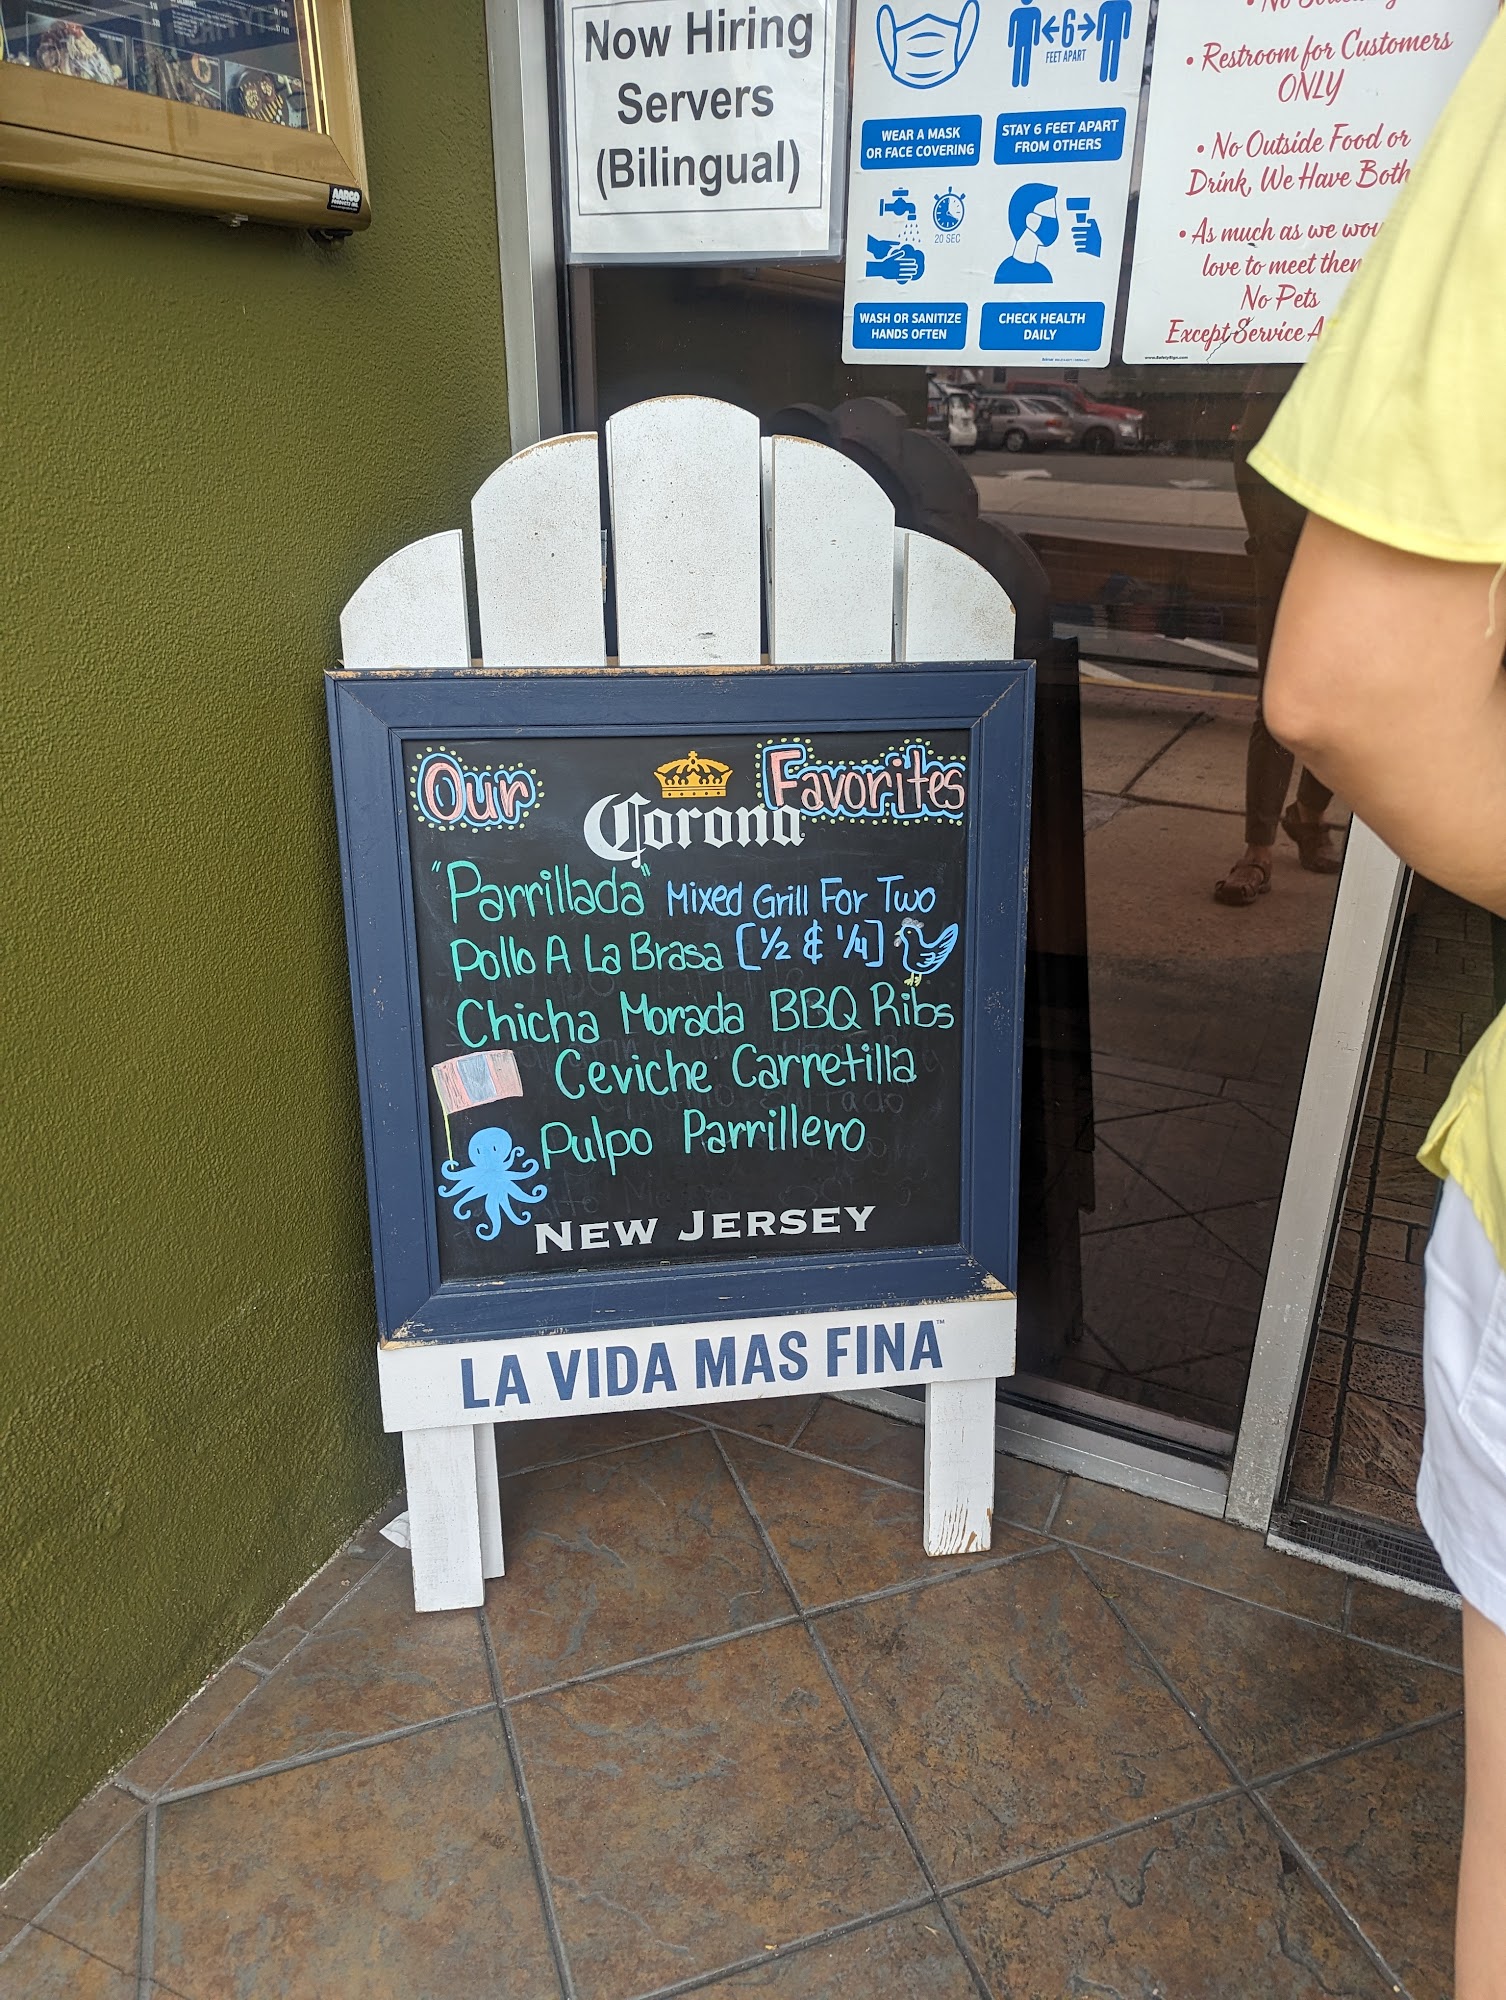 Now Hiring
Servers
(Bilingual)
←6→
FEET APART
WEAR A MASK
OR FACE COVERING
STAY 6 FEET APART
FROM OTHERS
20 SEC
WASH OR SANITIZE
HANDS OFTEN
CHECK HEALTH
DAILY
• No
• Restroom for Customers
ONLY
• No Outside Food or
Drink, We Have Both
• As much as we
love to meet
No Pets
Except Service
www.SafetySign.com
AARCO
PRODUCTS INC.
Our Favorites
Corona
"Parrillada" Mixed Grill For Two
Pollo A La Brasa [1/2 & 1/4]
Chicha Morada BBQ Ribs
Ceviche Carretilla
Pulpo Parrillero
NEW JERSEY
LA VIDA MAS FINA™